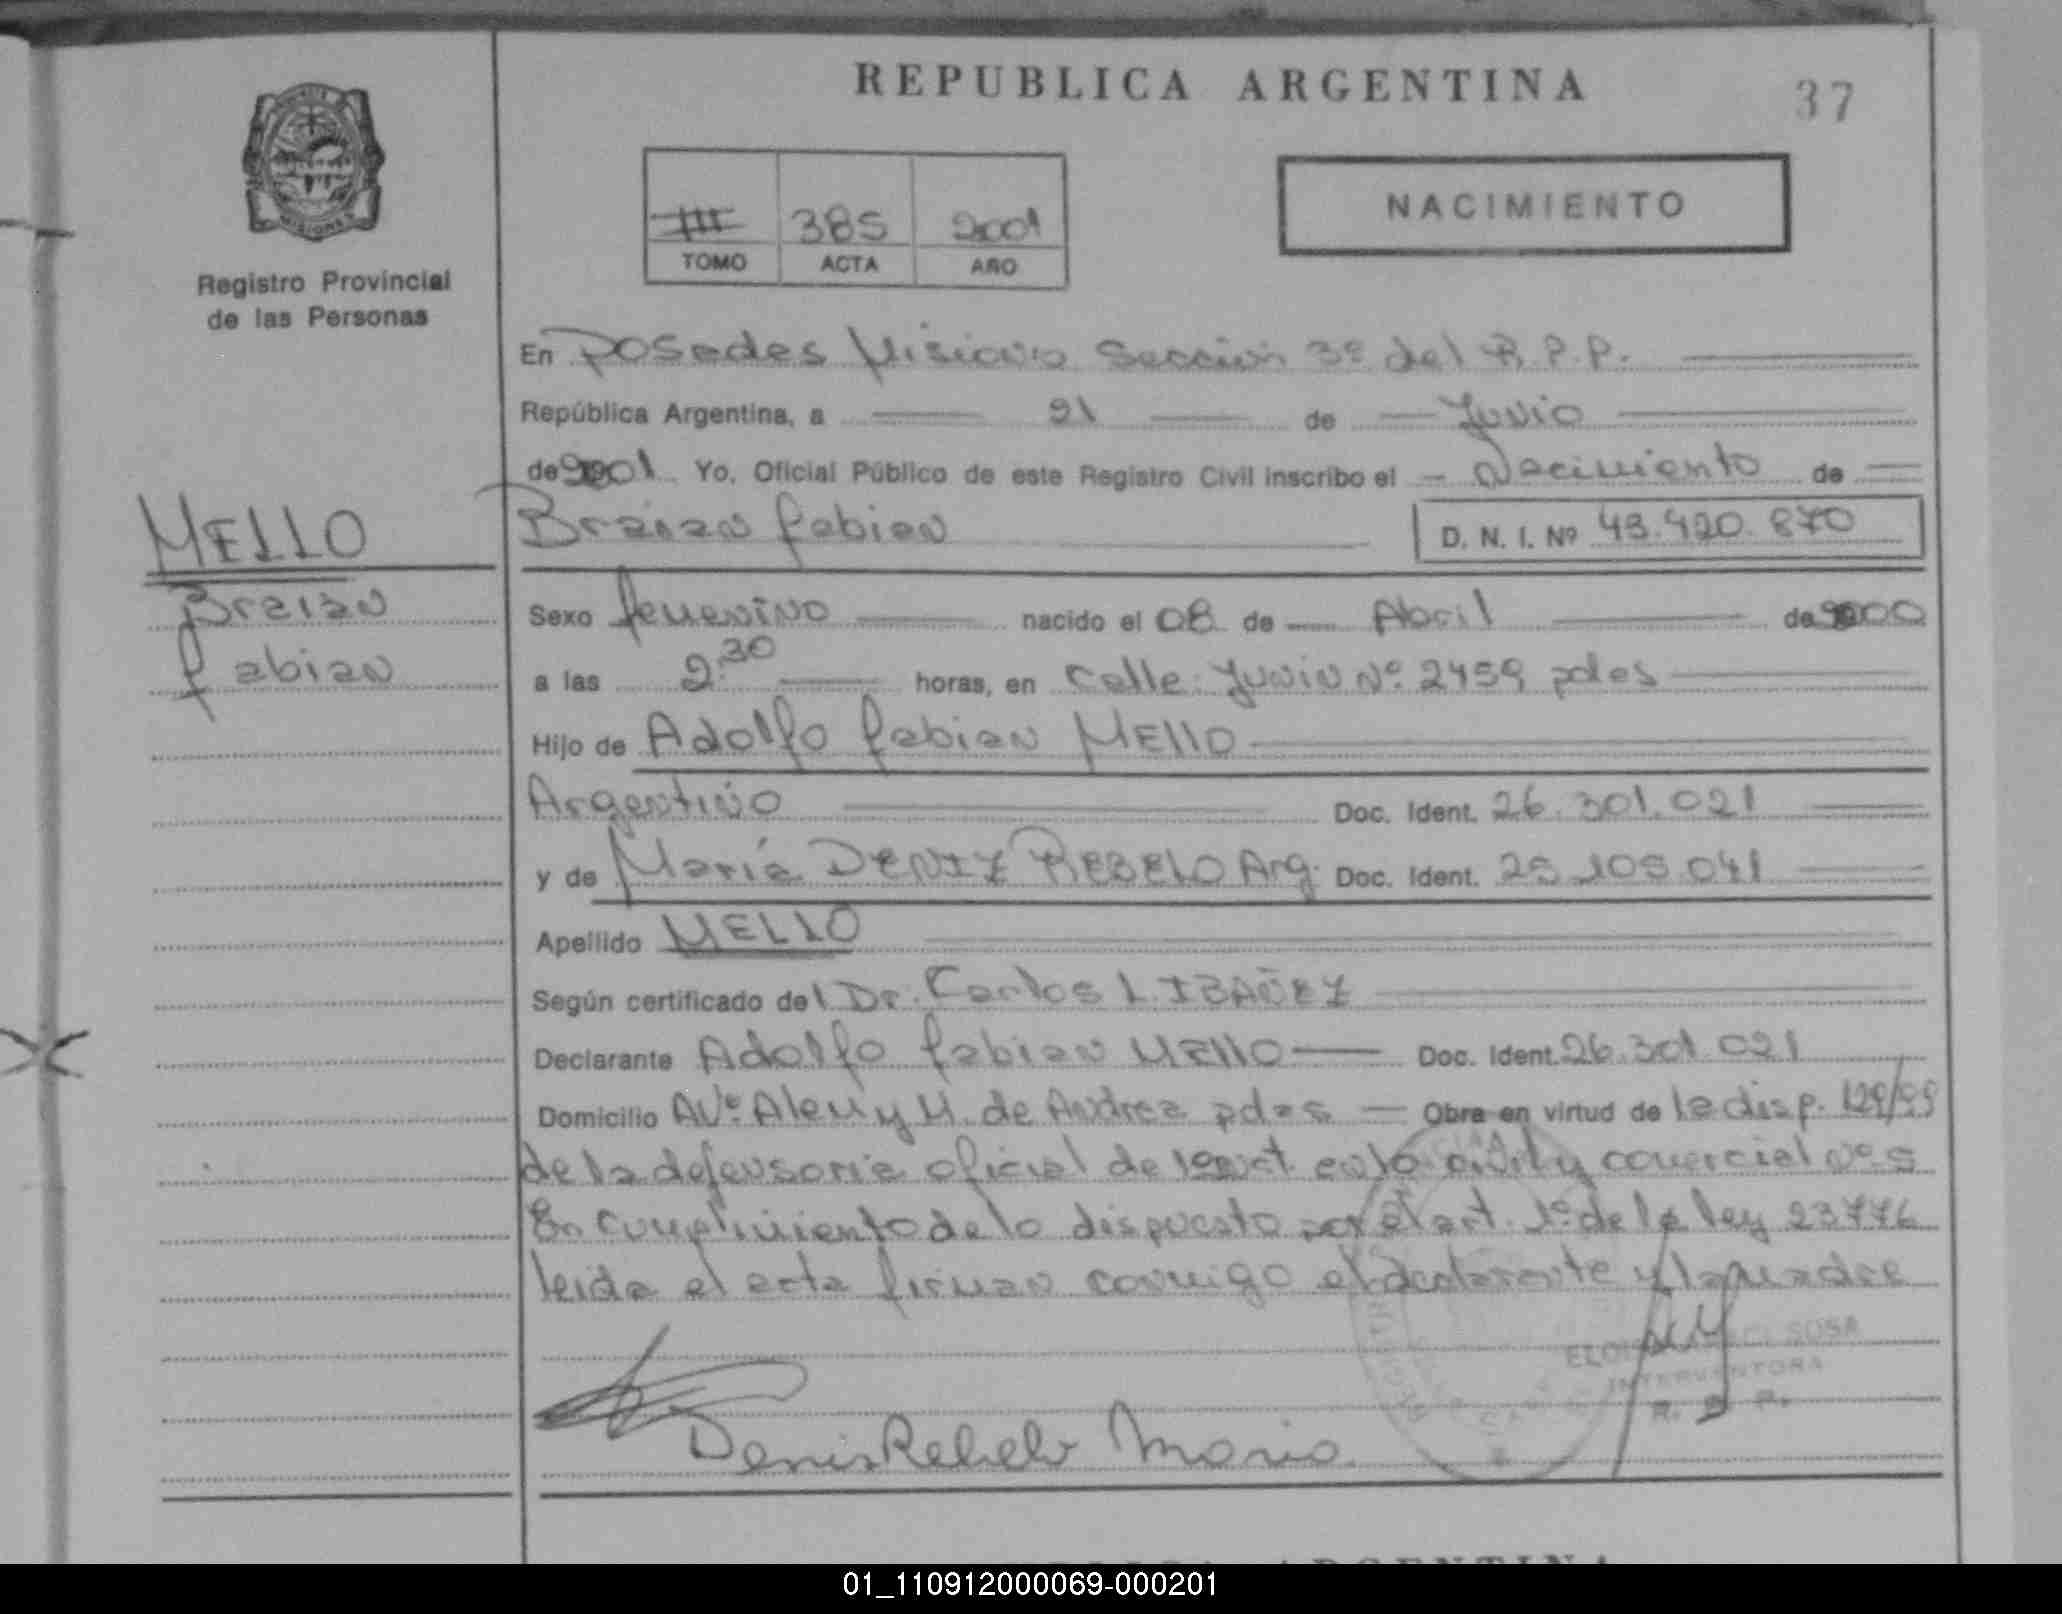 REPUBLICA ARGENTINA
37
III 385 2001
TOMO ACTA AÑO
NACIMIENTO
MISIONES
Registro Provincial
de las Personas
En Posadas Misiones Sección 3º del R.P.P.
República Argentina, a 21 de Junio
de 2001 Yo, Oficial Público de este Registro Civil inscribo el Nacimiento de
Braian Fabian D. N. I. Nº 43.420.870
MELLO
Braian
Fabian
Sexo femenino nacido el 08 de Abril de 2000
a las 2:30 horas, en Calle: Junin Nº 2459 pdas
Hijo de Adolfo Fabian MELLO
Argentino Doc. Ident. 26.301.021
y de María DENIZ REBELO Arg. Doc. Ident. 25.105.041
Apellido MELLO
Según certificado del Dr. Carlos L. IBAÑEZ
Declarante Adolfo Fabian MELLO Doc. Ident. 26.301.021
Domicilio Avº Alem y M. de Andrea pdas Obra en virtud de la disp. 129/99
de la defensoria oficial de 1º inst en lo civil y comercial Nº 5
En cumplimiento de lo dispuesto por el art. 1º de la ley 23776
leida el acta firman conmigo el declarante y la madre
SOSA
INTERVENTORA
R. P. P.
Denis Rebelo Maria
01_110912000069-000201